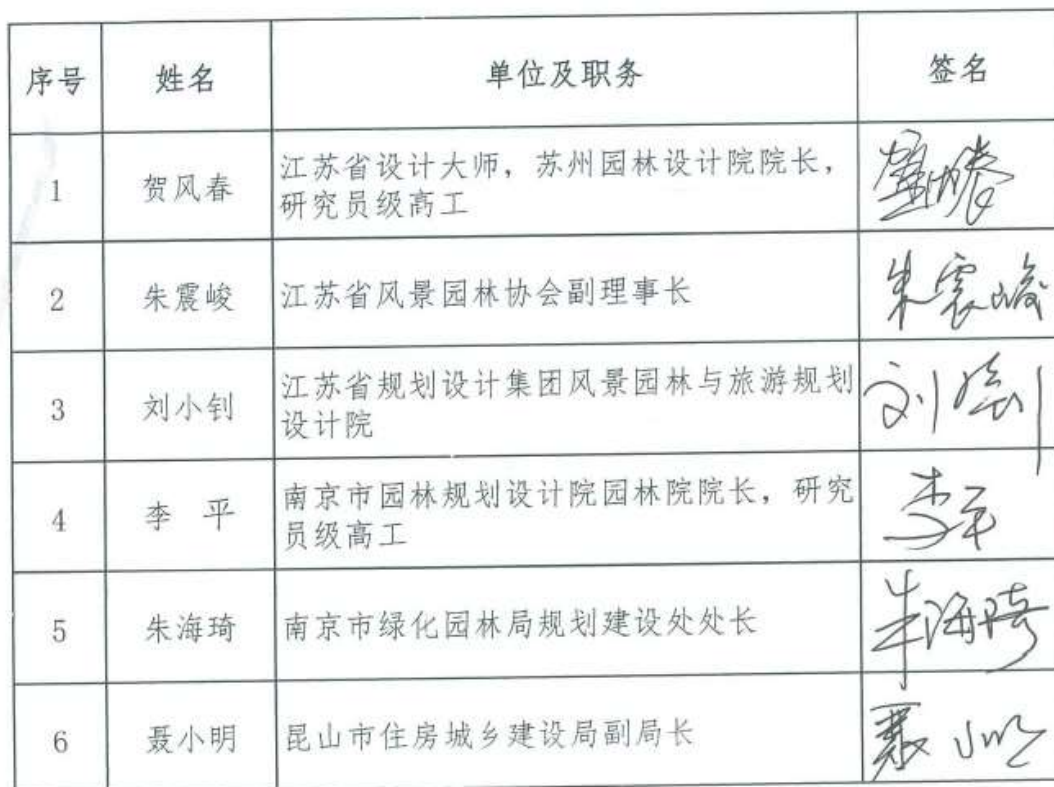 序号 姓名 单位及职务 签名
1 贺风春 江苏省设计大师，苏州园林设计院院长，
研究员级高工
2 朱震峻 江苏省风景园林协会副理事长 朱震峻
3 刘小钊 江苏省规划设计集团风景园林与旅游规划
设计院
4 李 平 南京市园林规划设计院园林院院长，研究
员级高工 李平
5 朱海琦 南京市绿化园林局规划建设处处长 朱海琦
6 聂小明 昆山市住房城乡建设局副局长 聂小明